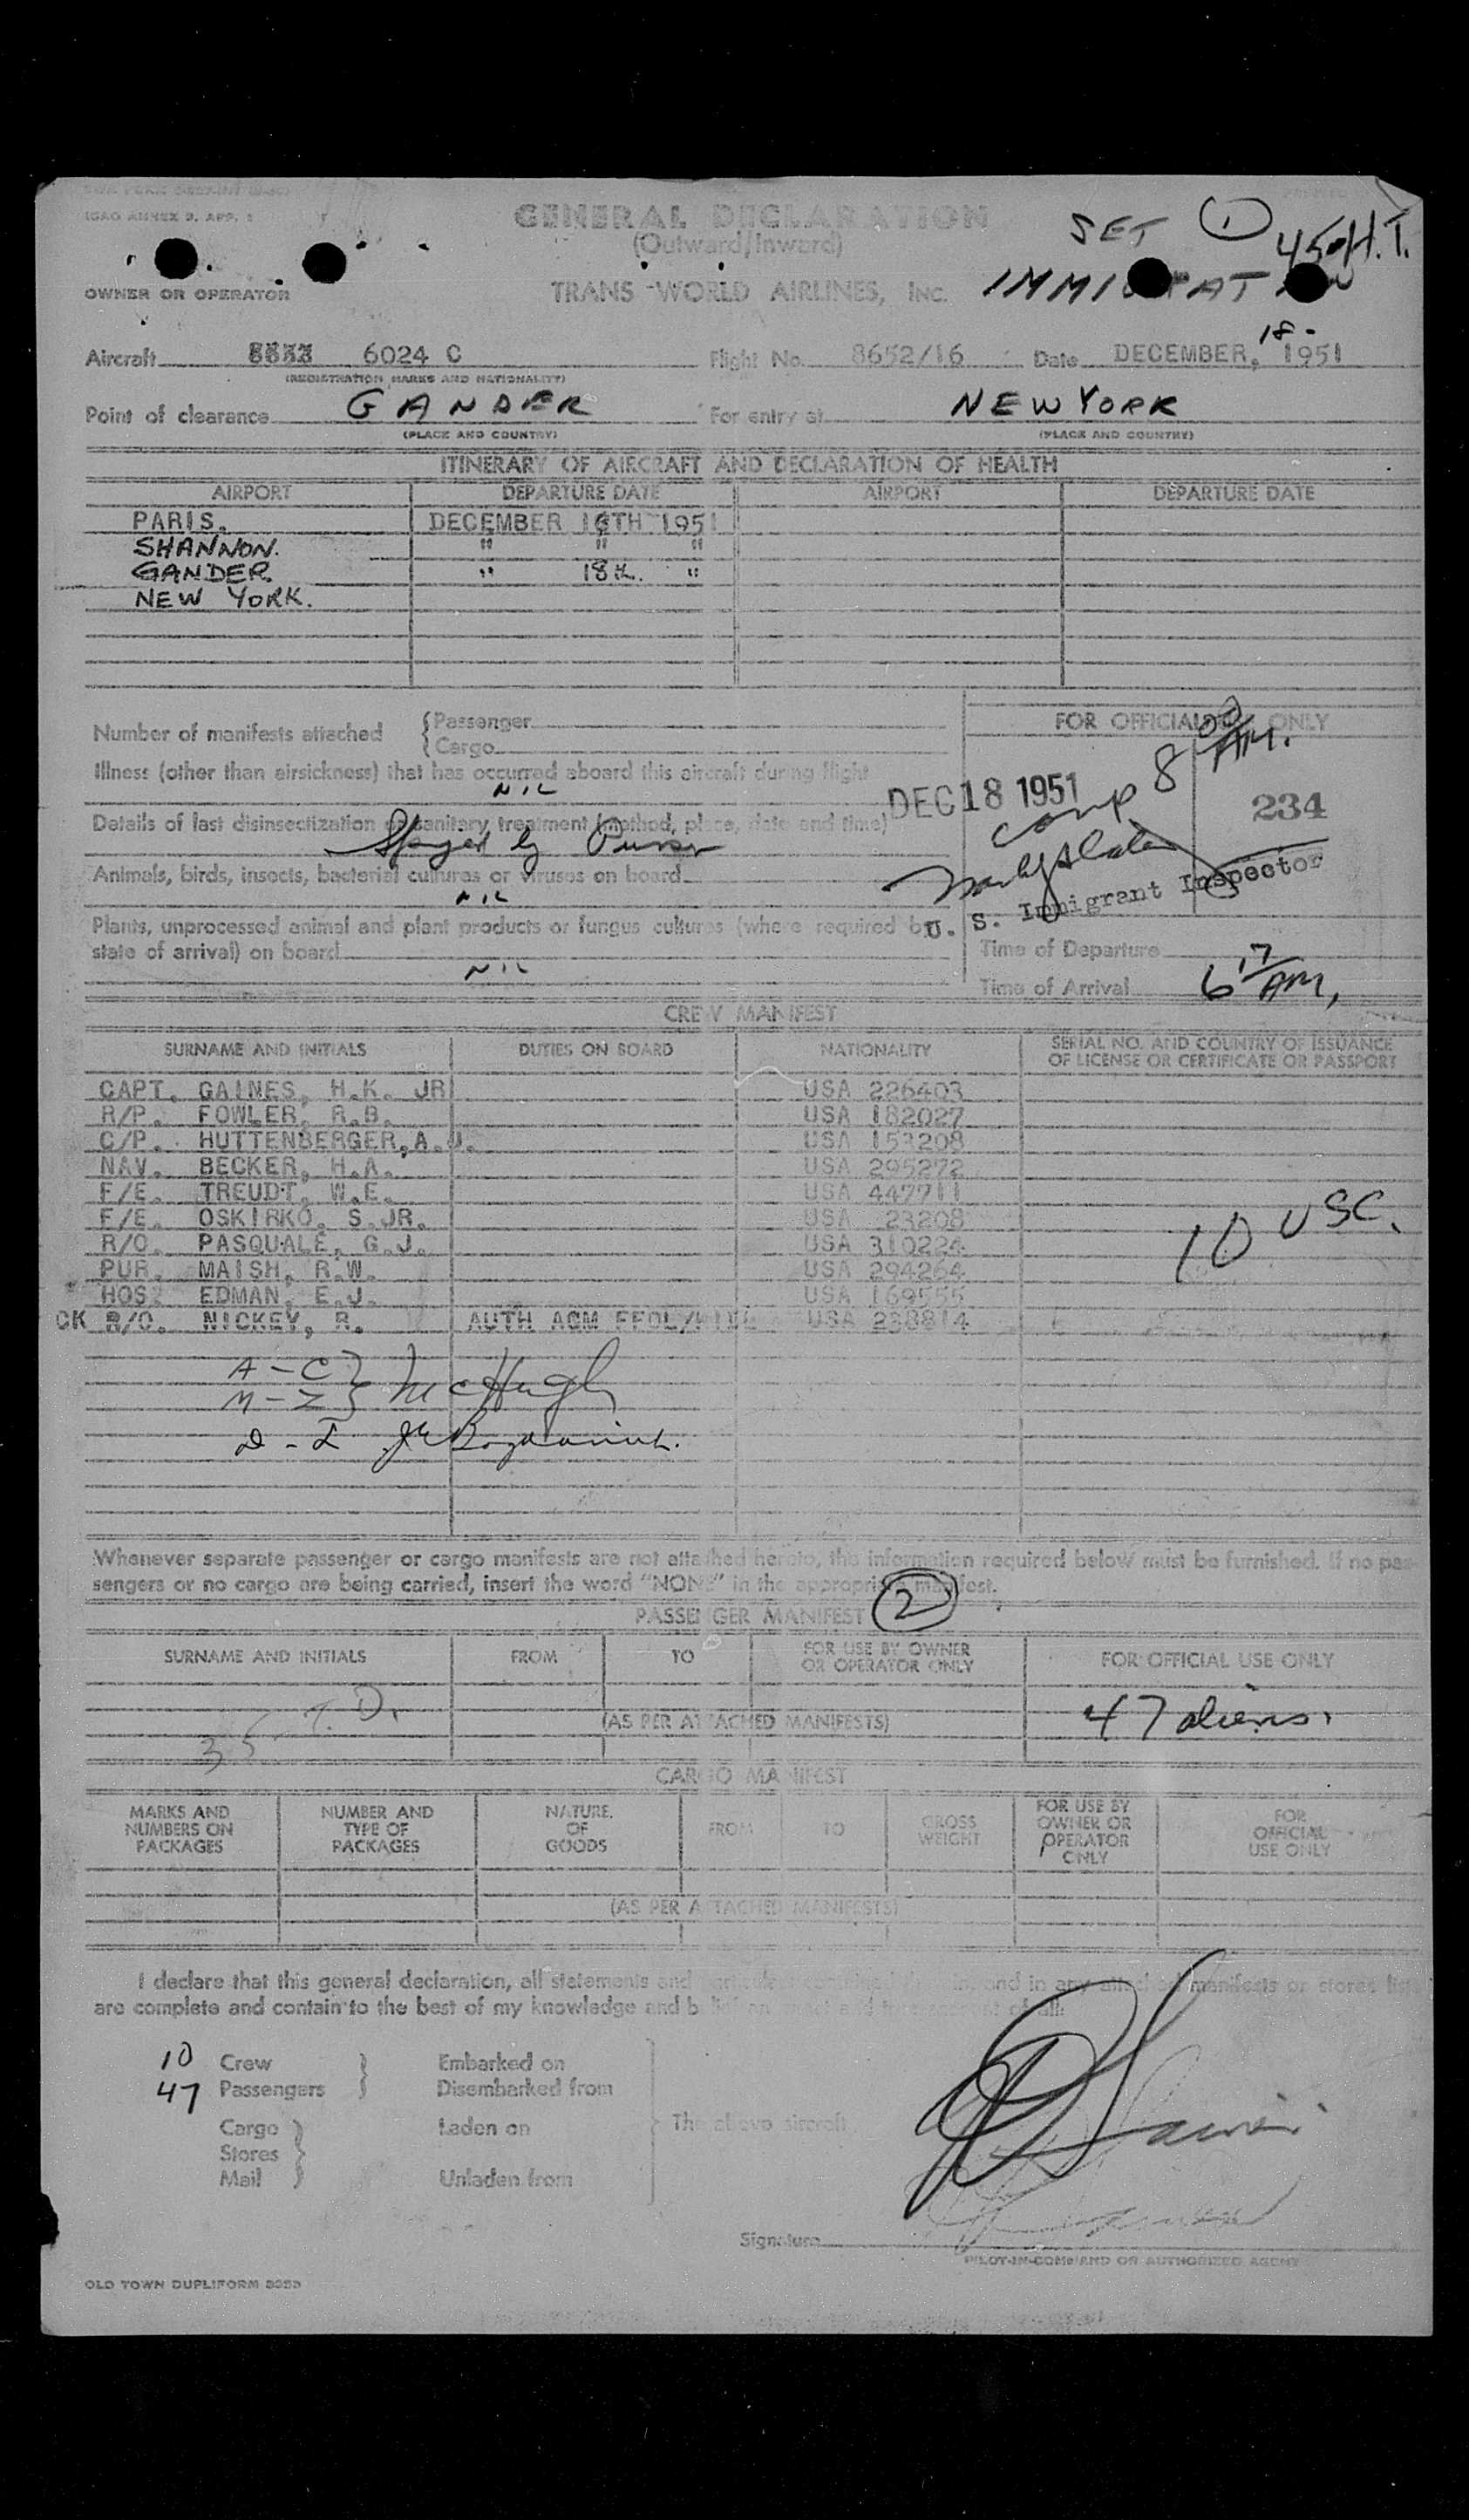 ICAO ANNEX 9, APP. 1
GENERAL DECLARATION
(Outward/Inward)
SET 1 45 H.T.
IMMIGRATION
OWNER OR OPERATOR TRANS WORLD AIRLINES, INC.
Aircraft 6024 C Flight No. 8652/16 Date DECEMBER, 18- 1951
(REGISTRATION MARKS AND NATIONALITY)
Point of clearance GANDER For entry at NEW YORK
(PLACE AND COUNTRY) (PLACE AND COUNTRY)
ITINERARY OF AIRCRAFT AND DECLARATION OF HEALTH
AIRPORT DEPARTURE DATE AIRPORT DEPARTURE DATE
PARIS. DECEMBER 16TH 1951
SHANNON. " " "
GANDER. " 18th. "
NEW YORK.
Number of manifests attached { Passenger
{ Cargo
FOR OFFICIAL USE ONLY
Illness (other than airsickness) that has occurred aboard this aircraft during flight
NIL
DEC 18 1951
comp 8 00 AM.
234
Details of last disinsectization or sanitary treatment (method, place, date and time)
Sprayed by Purser
Animals, birds, insects, bacterial cultures or viruses on board
NIL
U. S. Immigrant Inspector
Plants, unprocessed animal and plant products or fungus cultures (where required by
state of arrival) on board
NIL
Time of Departure
Time of Arrival 6 17 AM,
CREW MANIFEST
SURNAME AND INITIALS DUTIES ON BOARD NATIONALITY SERIAL NO. AND COUNTRY OF ISSUANCE
OF LICENSE OR CERTIFICATE OR PASSPORT
CAPT. GAINES, H.K. JR USA 226403
R/P. FOWLER, R.B. USA 182027
C/P. HUTTENBERGER, A.J. USA 153208
NAV. BECKER, H.A. USA 295272
F/E. TREUDT, W.E. USA 447711
F/E. OSKIRKO, S.JR. USA 23208
R/O. PASQUALE, G.J. USA 310224
PUR. MAISH, R.W. USA 294264
HOS. EDMAN, E.J. USA 169555
CK R/O. NICKEY, R. AUTH ACM USA 238814
10 USC.
A - C }
M - Z } McHugh
D - I
Whenever separate passenger or cargo manifests are not attached hereto, the information required below must be furnished. If no pas-
sengers or no cargo are being carried, insert the word "NONE" in the appropriate manifest.
PASSENGER MANIFEST 2
SURNAME AND INITIALS FROM TO FOR USE BY OWNER
OR OPERATOR ONLY FOR OFFICIAL USE ONLY
(AS PER ATTACHED MANIFESTS) 47 aliens.
CARGO MANIFEST
MARKS AND
NUMBERS ON
PACKAGES
NUMBER AND
TYPE OF
PACKAGES
NATURE
OF
GOODS
FROM
TO
GROSS
WEIGHT
FOR USE BY
OWNER OR
OPERATOR
ONLY
FOR
OFFICIAL
USE ONLY
(AS PER ATTACHED MANIFESTS)
I declare that this general declaration, all statements and and in any attached manifests or stores lists
are complete and contain to the best of my knowledge and belief
10 Crew } Embarked on
47 Passengers } Disembarked from
Cargo } Laden on The above aircraft
Stores }
Mail } Unladen from
Signature
PILOT-IN-COMMAND OR AUTHORIZED AGENT
OLD TOWN DUPLIFORM